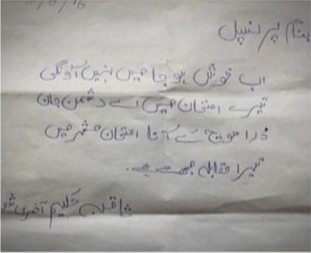 بنام پرنسپل
اب خوش ہو جا میں نہیں آونگی
تیرے امتحان میں اے دشمن جان
ذرا سوچ لے کہ امتحان حشر میں
تیرا مقابلہ مجھ سے ہے۔
کلیم آخری